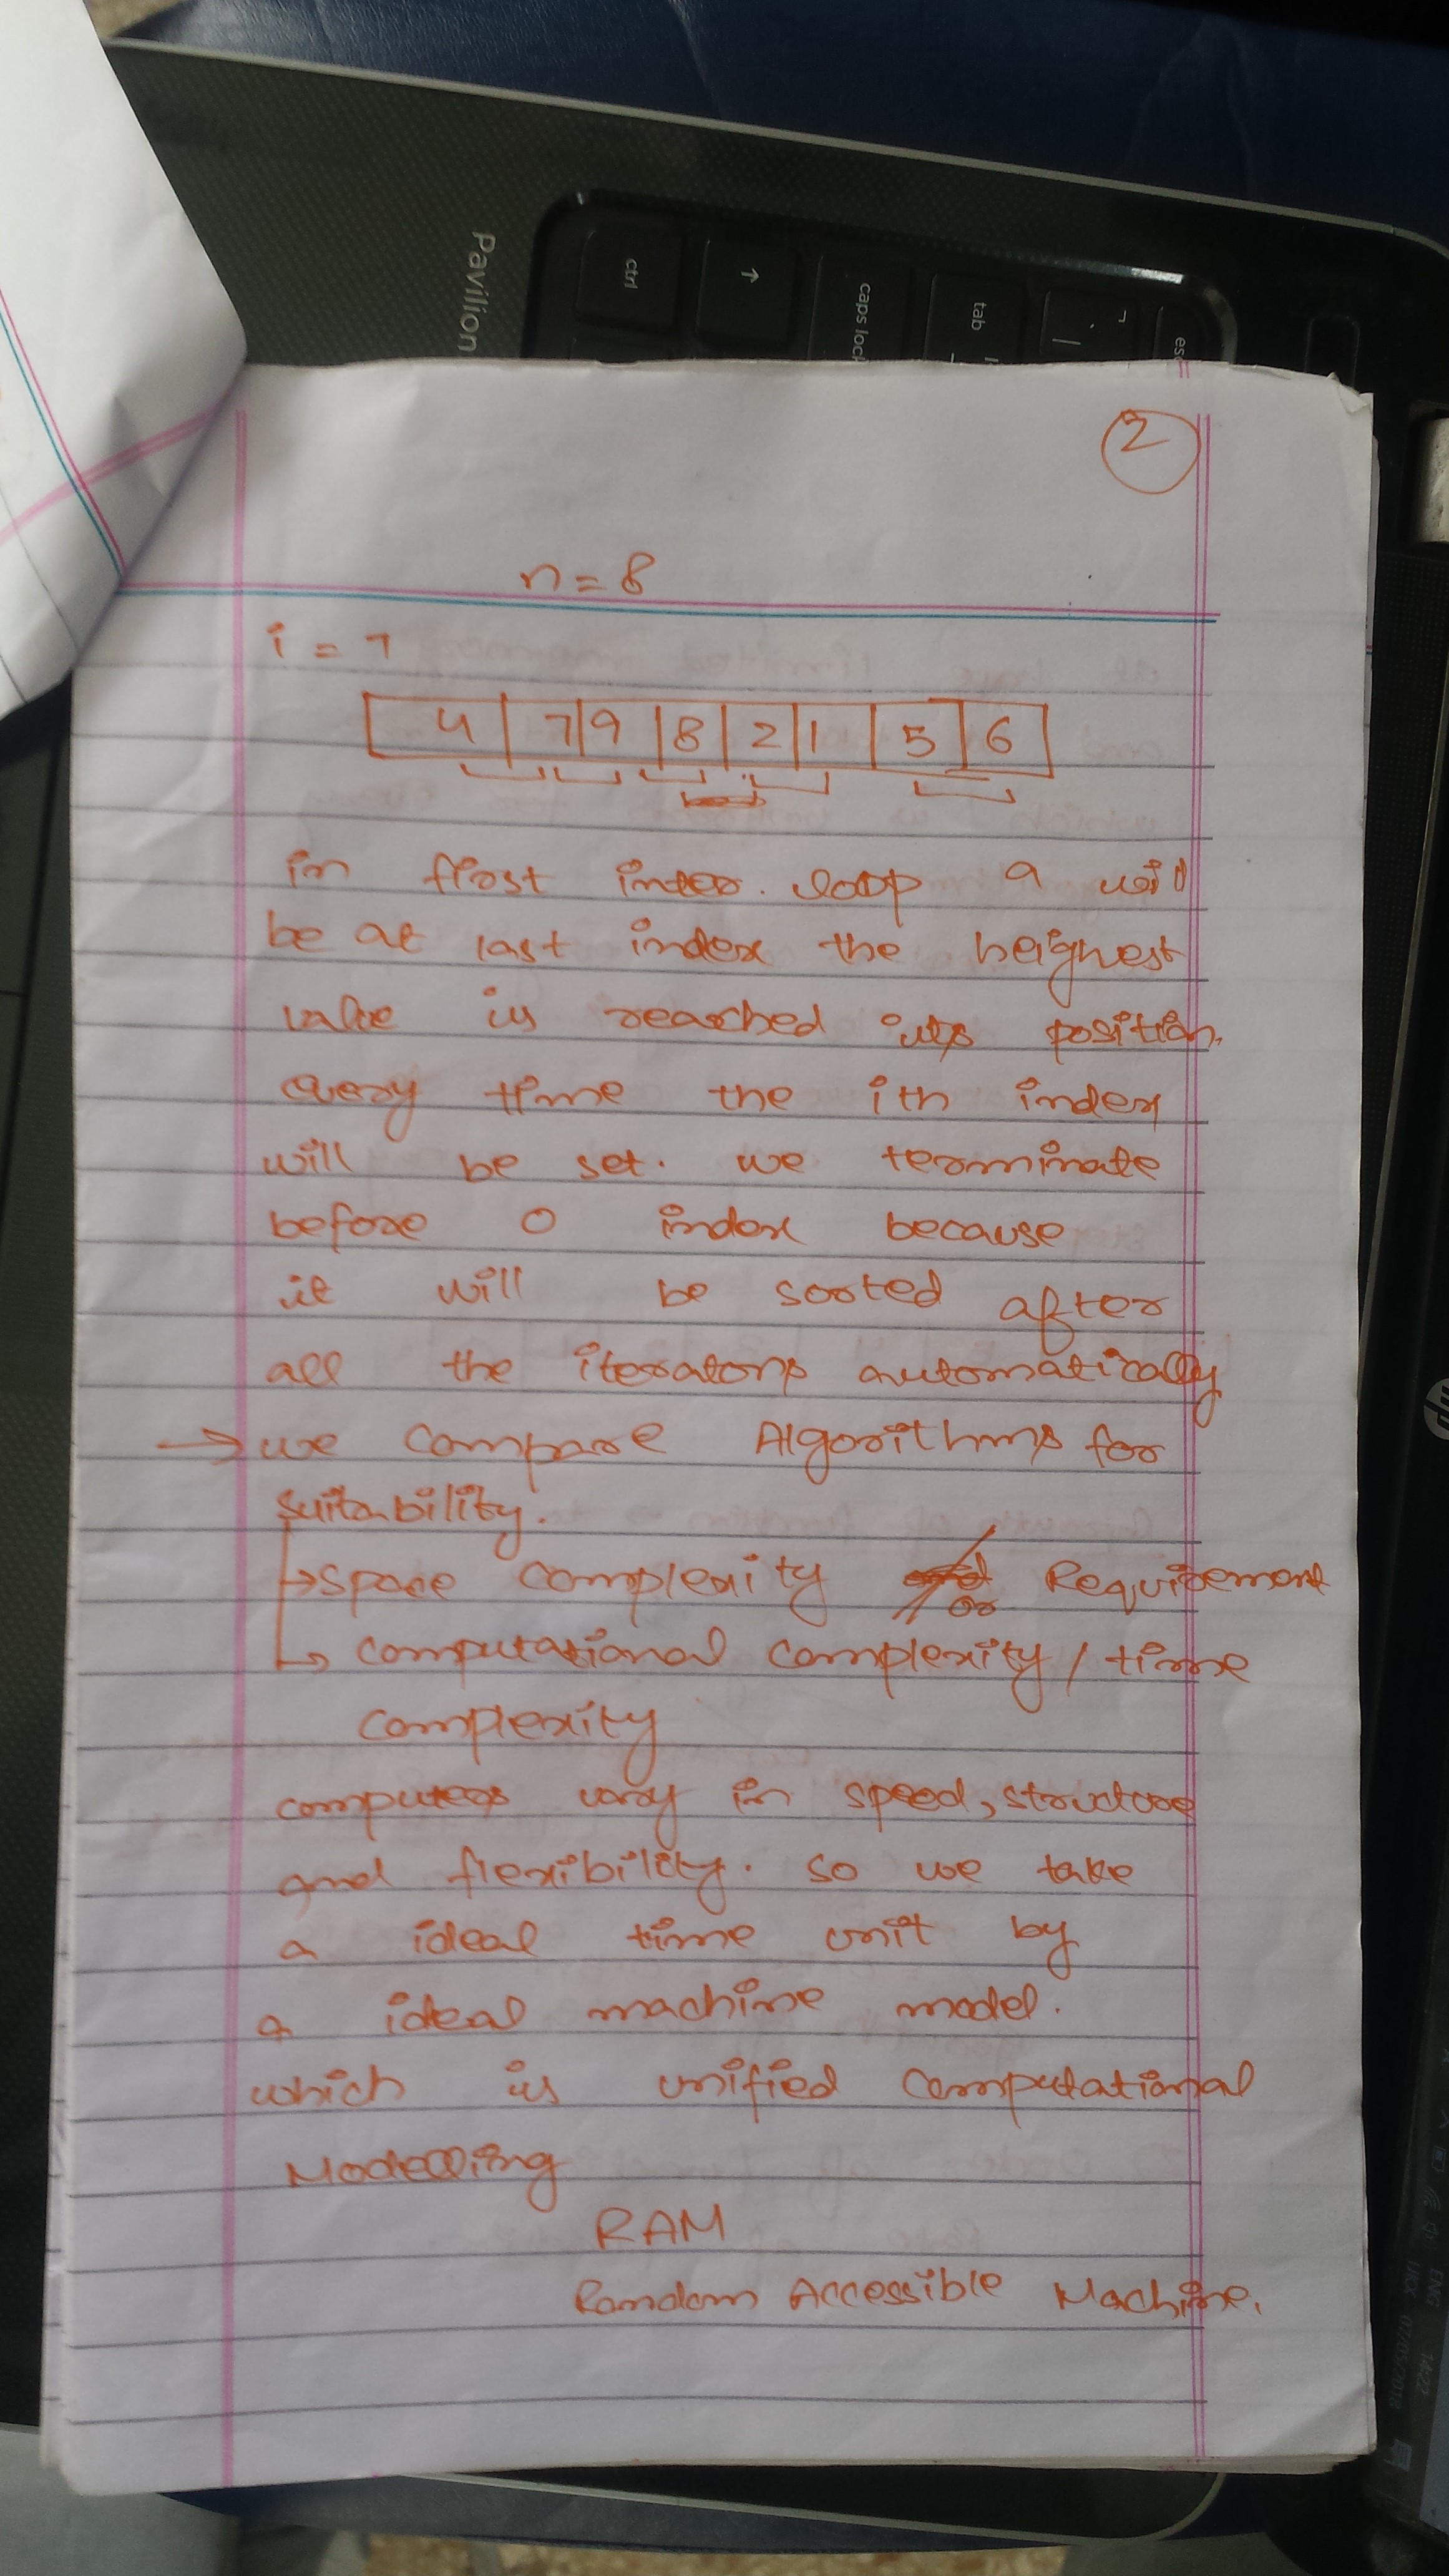 Pavilion
ctrl
caps lock
tab
esc
2
n = 8
i = 7
4 7 9 8 2 1 5 6
in first inter. loop 9 will
be at last index the heighest
value is reached its position.
every time the ith index
will be set. we terminate
before 0 index because
it will be sorted after
all the iterators automatically
→ we compare Algorithms for
suitability.
→ space complexity or Requirement
→ computational complexity / time
complexity
computers vary in speed, structure
and flexibility. so we take
a ideal time unit by
a ideal machine model.
which is unified computational
Modelling
RAM
Random Accessible Machine.
hp
ENG
UKX
14:22
07/05/2018